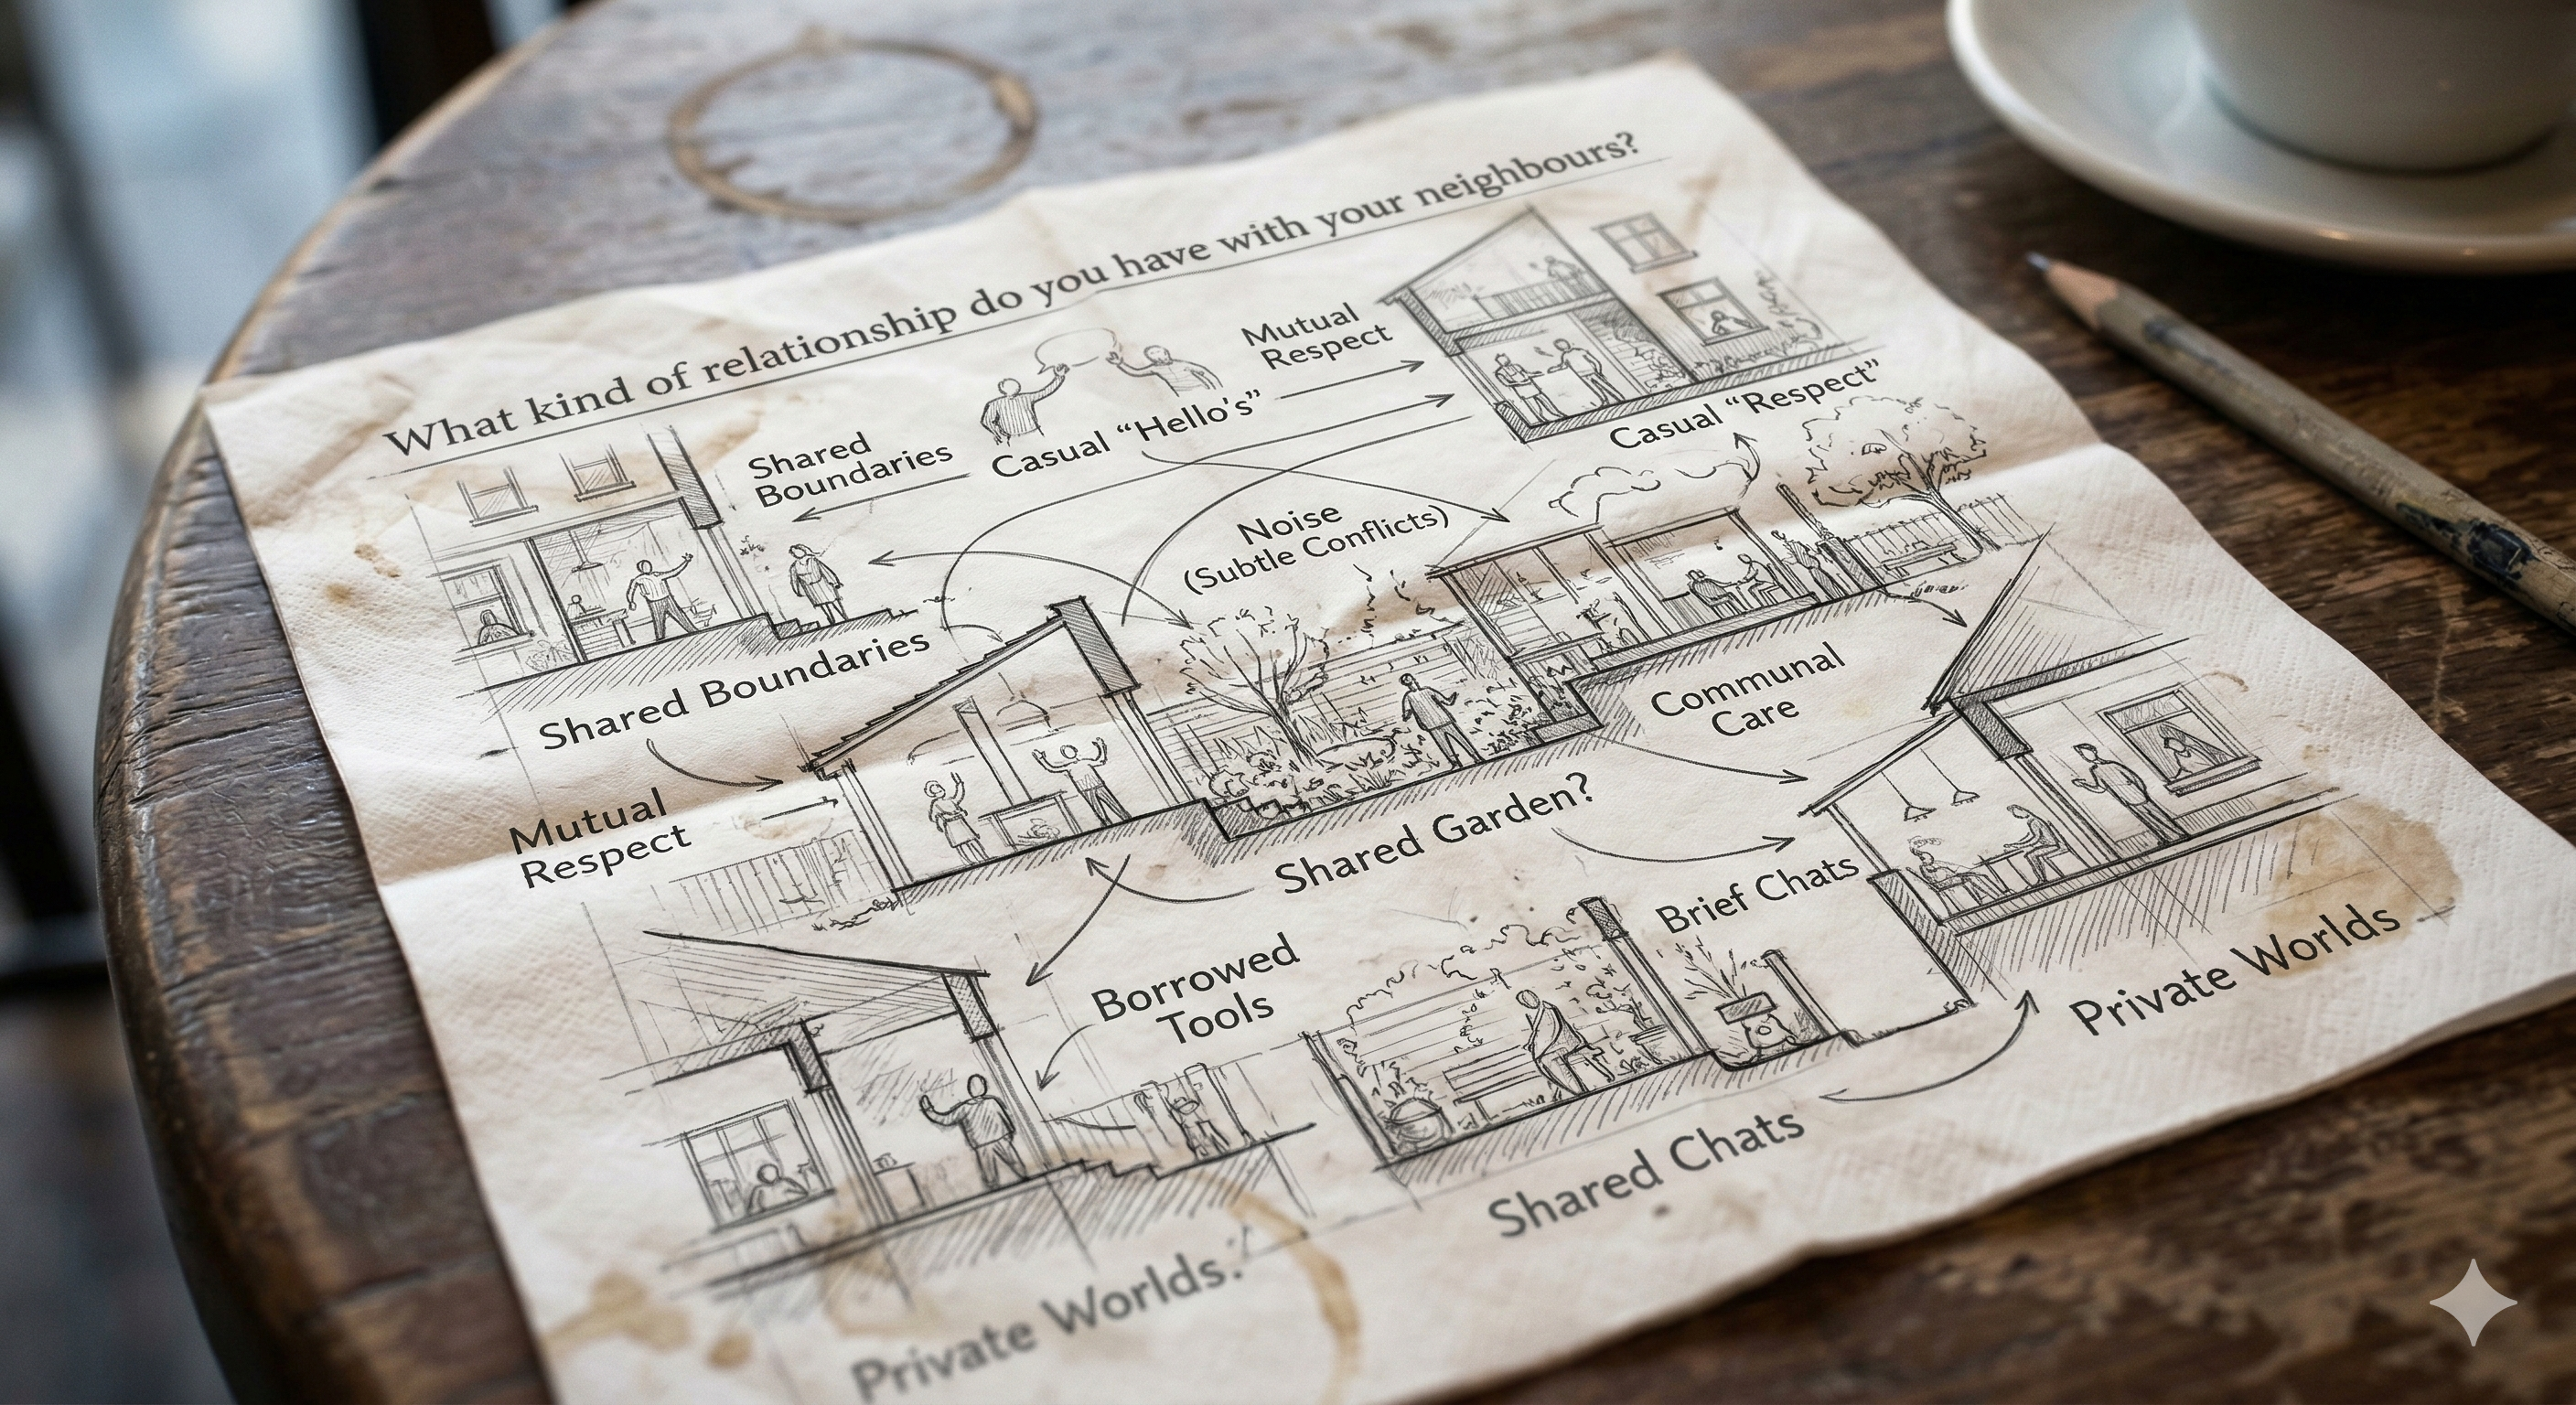 What kind of relationship do you have with your neighbours?
Mutual
Respect
Shared
Boundaries
Casual “Hello's”
Casual “Respect”
Noise
(Subtle Conflicts)
Shared Boundaries
Communal
Care
Mutual
Respect
Shared Garden?
Brief Chats
Borrowed
Tools
Private Worlds
Shared Chats
Private Worlds.